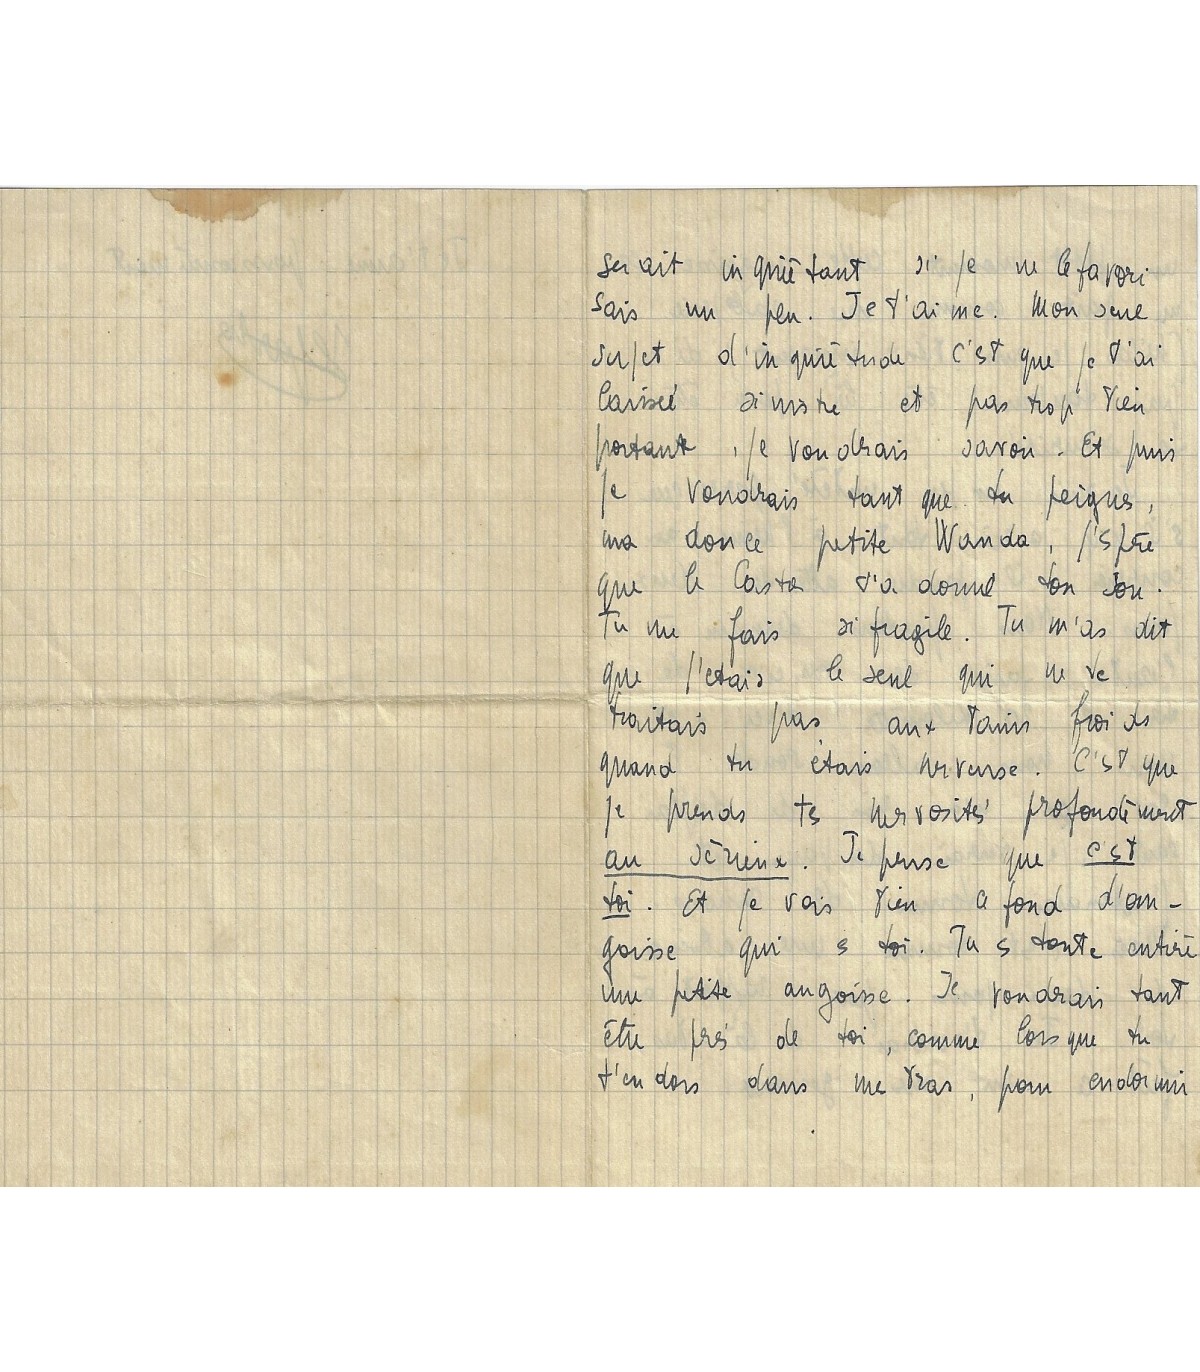 serait inquiétant si je ne le favori
sais un peu. Je t'aime. Mon seul
sujet d'inquiétude c'est que je t'ai
laissée sinistre et pas trop bien
portante, je voudrais savoir. Et puis
je voudrais tant que tu peignes,
ma douce petite Wanda, j'espère
que le Castor t'a donné ton
Tu me fais si fragile. Tu m'as dit
que j'étais le seul qui ne te
traitais pas aux bains froids
quand tu étais nerveuse. C'est que
je prends tes nervosités profondément
au sérieux. Je pense que c'est
toi. Et je vais bien a fond d'an-
goisse qui es toi. Tu es toute entière
une petite angoisse. Je voudrais tant
être près de toi, comme lorsque tu
t'endors dans mes bras, pour endormir